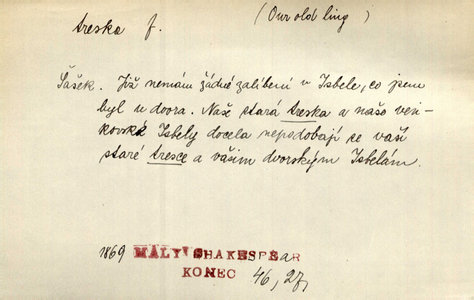 treska f. (Our old ling)
Šašek. Již nemám žádné zalíbení v Isbele, co jsem
byl u dvora. Naše stará treska a naše ven-
kovské Isbely docela nepodobají se vaší
staré tresce a vašim dvorským Isbelám.
1869 MALÝ SHAKESPEAR
KONEC 46, 27,